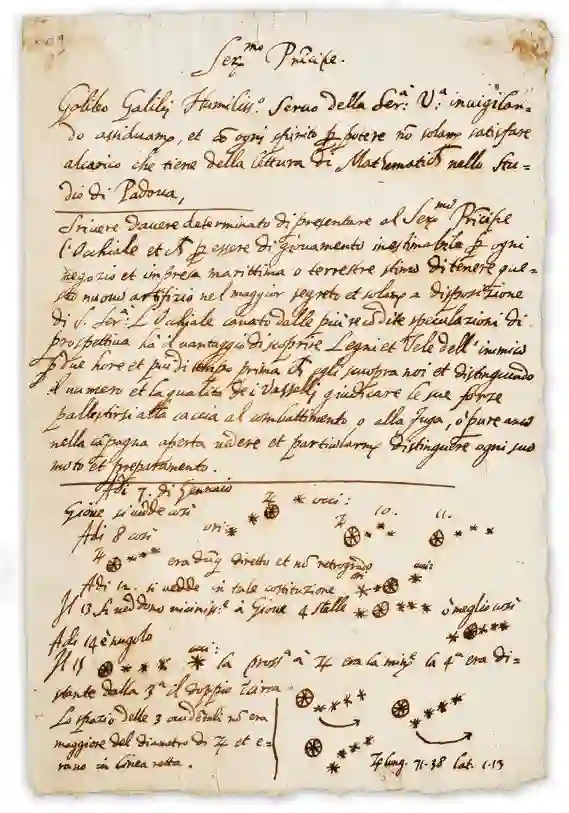 Ser.mo Principe.
Galileo Galilei Humiliss.o Servo della Ser.a V.a invigilan-
do assiduam.e, et ogni spirito potere nō solam.e satisfare
alcarico che tiene della lettura di Mathematich nello Stu-
dio di Padova,
Scrivere davere determinato di presentare al Ser.mo Pricipe
l'Occhiale et essere di giovamento inestimabile ogni
negozio et impresa marittima o terrestre stimo di tenere que-
sto nuovo artifizio nel maggior segreto et solam.e a disposizione
di S. Ser.a L'Occhiale cavato dalle più recōdite speculazioni di
prospettiva ha il vantaggio di scoprire Legni et Vele dell'inimico
due hore et più di tempo prima egli scuopra noi et distinguendo
il numero et la qualità de i Vasselli giudicare le sue forze
pallestirsi alla caccia al combattimento o alla fuga, o pure anco
nella cāpagna aperta vedere et particolarm.e distinguere ogni suo
moto et preparamento.
Adi 7. di Gennaio
Giove si vedde così
occi:
Adi 8 così ori:
10. 11.
era dūq diretto et nō retrogrado
Adi 12. si vedde in tale costituzione
Il 13 si veddono vicinis.e à Giove 4 stelle ò meglio così
Adi 14 è nugolo
Il 15 la pross.a à ♃ era la min.e la 4.a era di-
stante dalla 3.a il doppio circa
Lo spazio delle 3 occidētali nō era
maggiore del diametro di ♃ et e-
rano in linea retta.
♃ long. 71-38 lat. 1-13